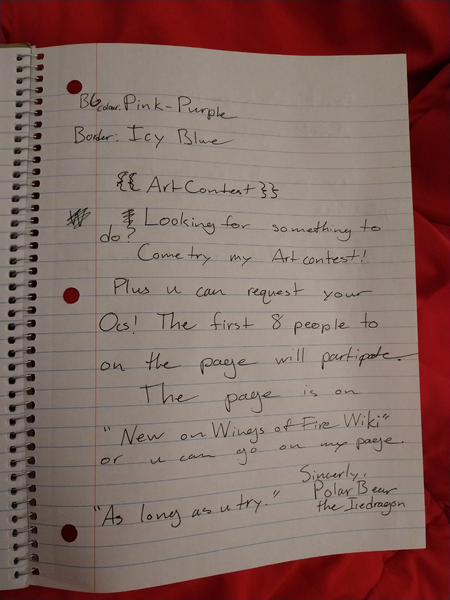 BG colour: Pink-Purple
Border: Icy Blue
{{ Art Contest }}
Looking for something to
do?
Come try my Art contest!
Plus u can request your
Ocs! The first 8 people to
on the page will partipate.
The page is on
"New on Wings of Fire Wiki"
or u can go on my page.
Sincerly,
Polar Bear
the Icedragon
"As long as u try."